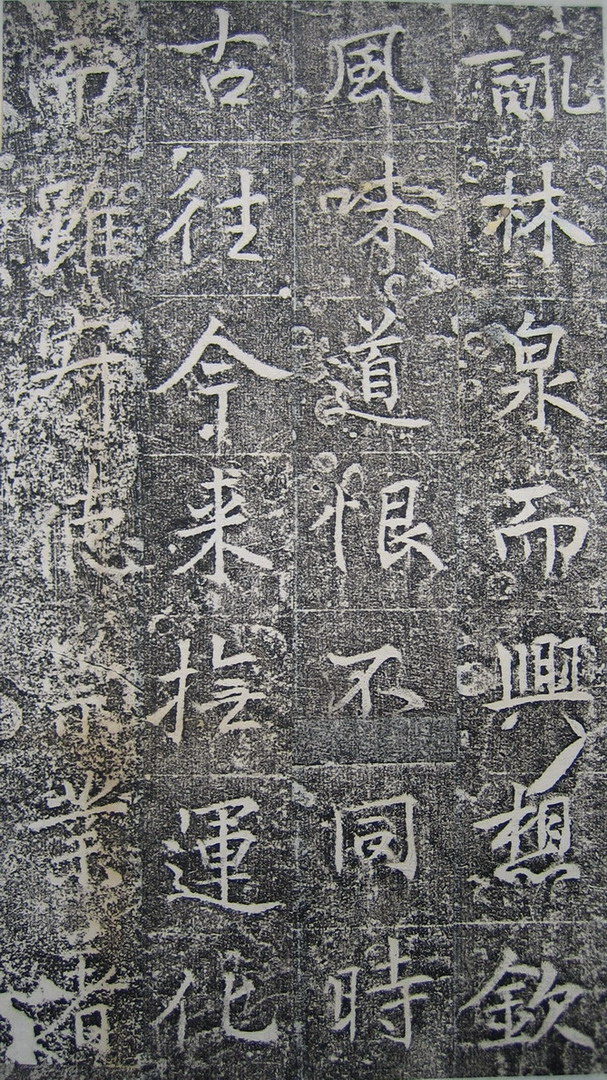 詠林泉而興想欽
風味道恨不同時
古往今来撫運化
而雖寄德崇業者